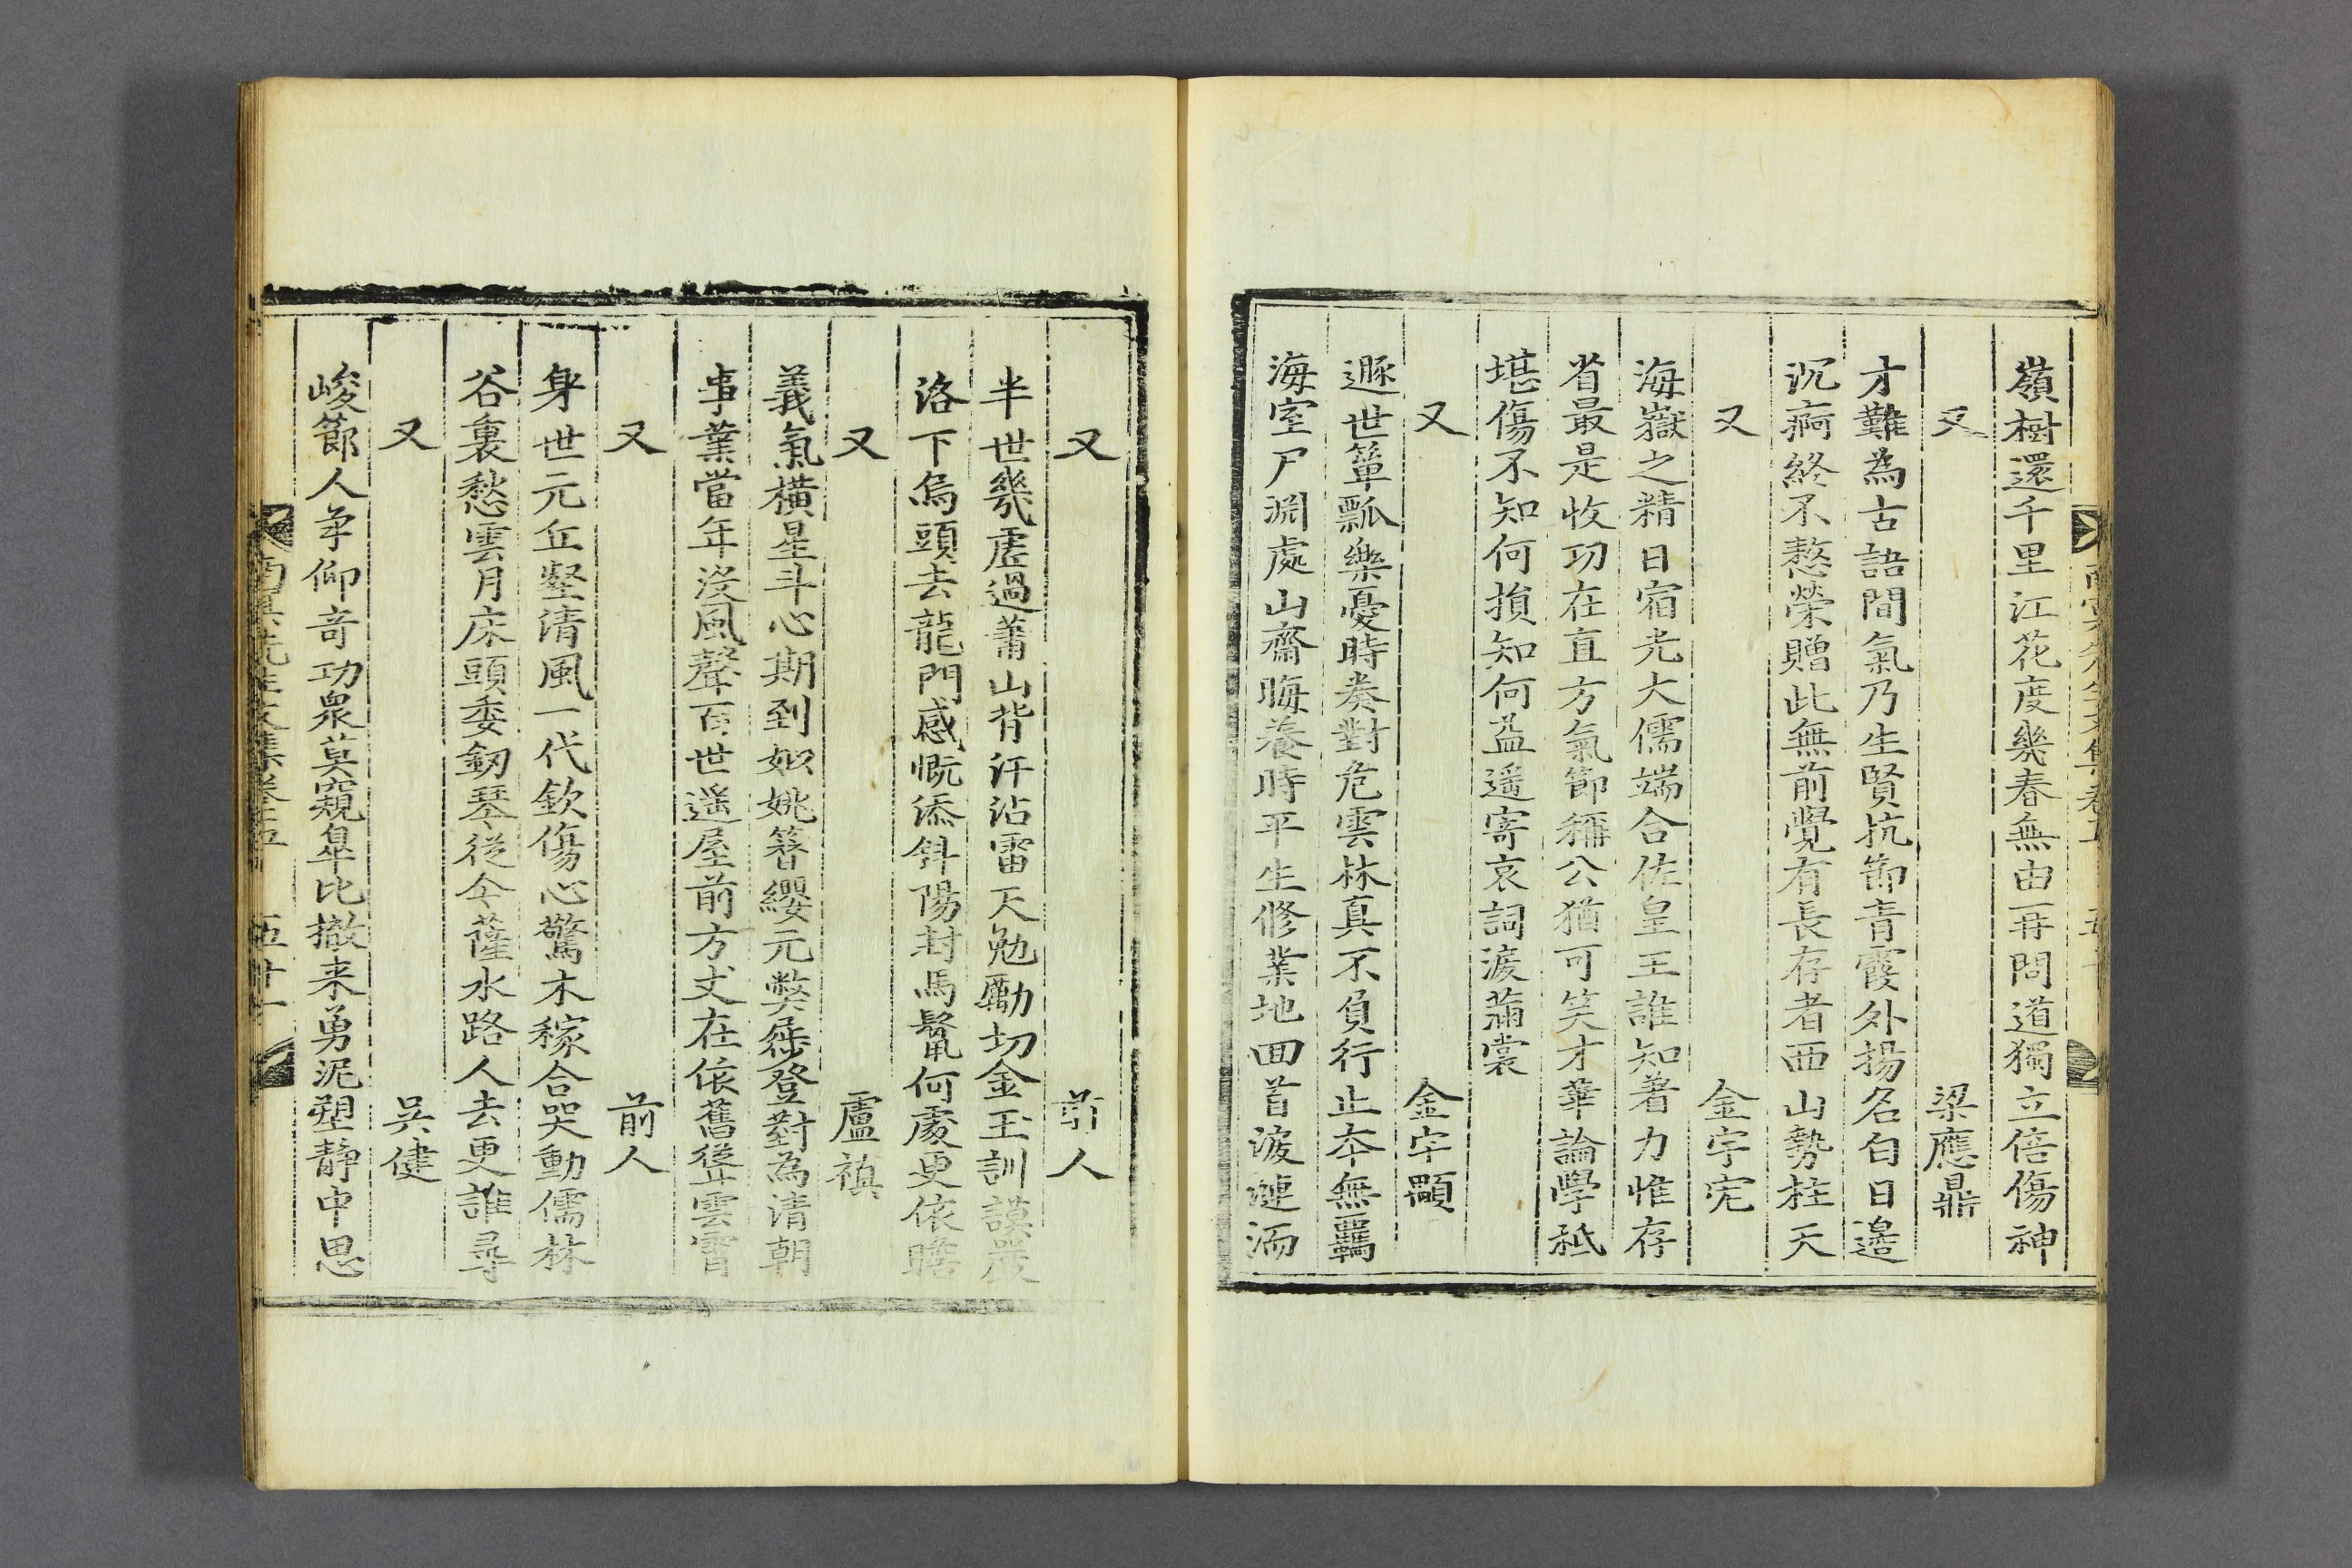 嶺樹還千里江花度幾春無由一再問道獨立倍傷神
又 梁應鼎
才難為古語間氣乃生賢抗節青霞外揚名白日邉
沉痾終不憖榮贈此無前覺有長存者西山勢柱天
又 金宇宏
海嶽之精日宿光大儒端合佐皇王誰知著力惟存
省最是收功在直方氣節稱公猶可笑才華論學秖
堪傷不知何損知何益遥寄哀詞淚滿裳
又 金宇顒
遯世簞瓢樂憂時奏對危雲林真不負行止夲無羈
海室尸淵處山齋晦養時平生修業地回首淚漣洏
又 前人
半世幾虛過蕭山背汗沾雷天勉勵切金玉訓謨嚴
洛下烏頭去龍門感慨添斜陽封馬鬣何處更依瞻
又 盧禛
義氣橫星斗心期到姒姚簪纓元弊屣登對為清朝
事業當年沒風聲百世遥屋前方丈在依舊聳雲霄
又 前人
身世元丘壑清風一代欽傷心驚木稼合哭動儒林
谷裏愁雲月床頭委釼琴從今薤水路人去更誰尋
又 吳健
峻節人爭仰奇功衆莫窺臯比撤来勇泥塑靜中思
南冥先生文集卷之五 五十一